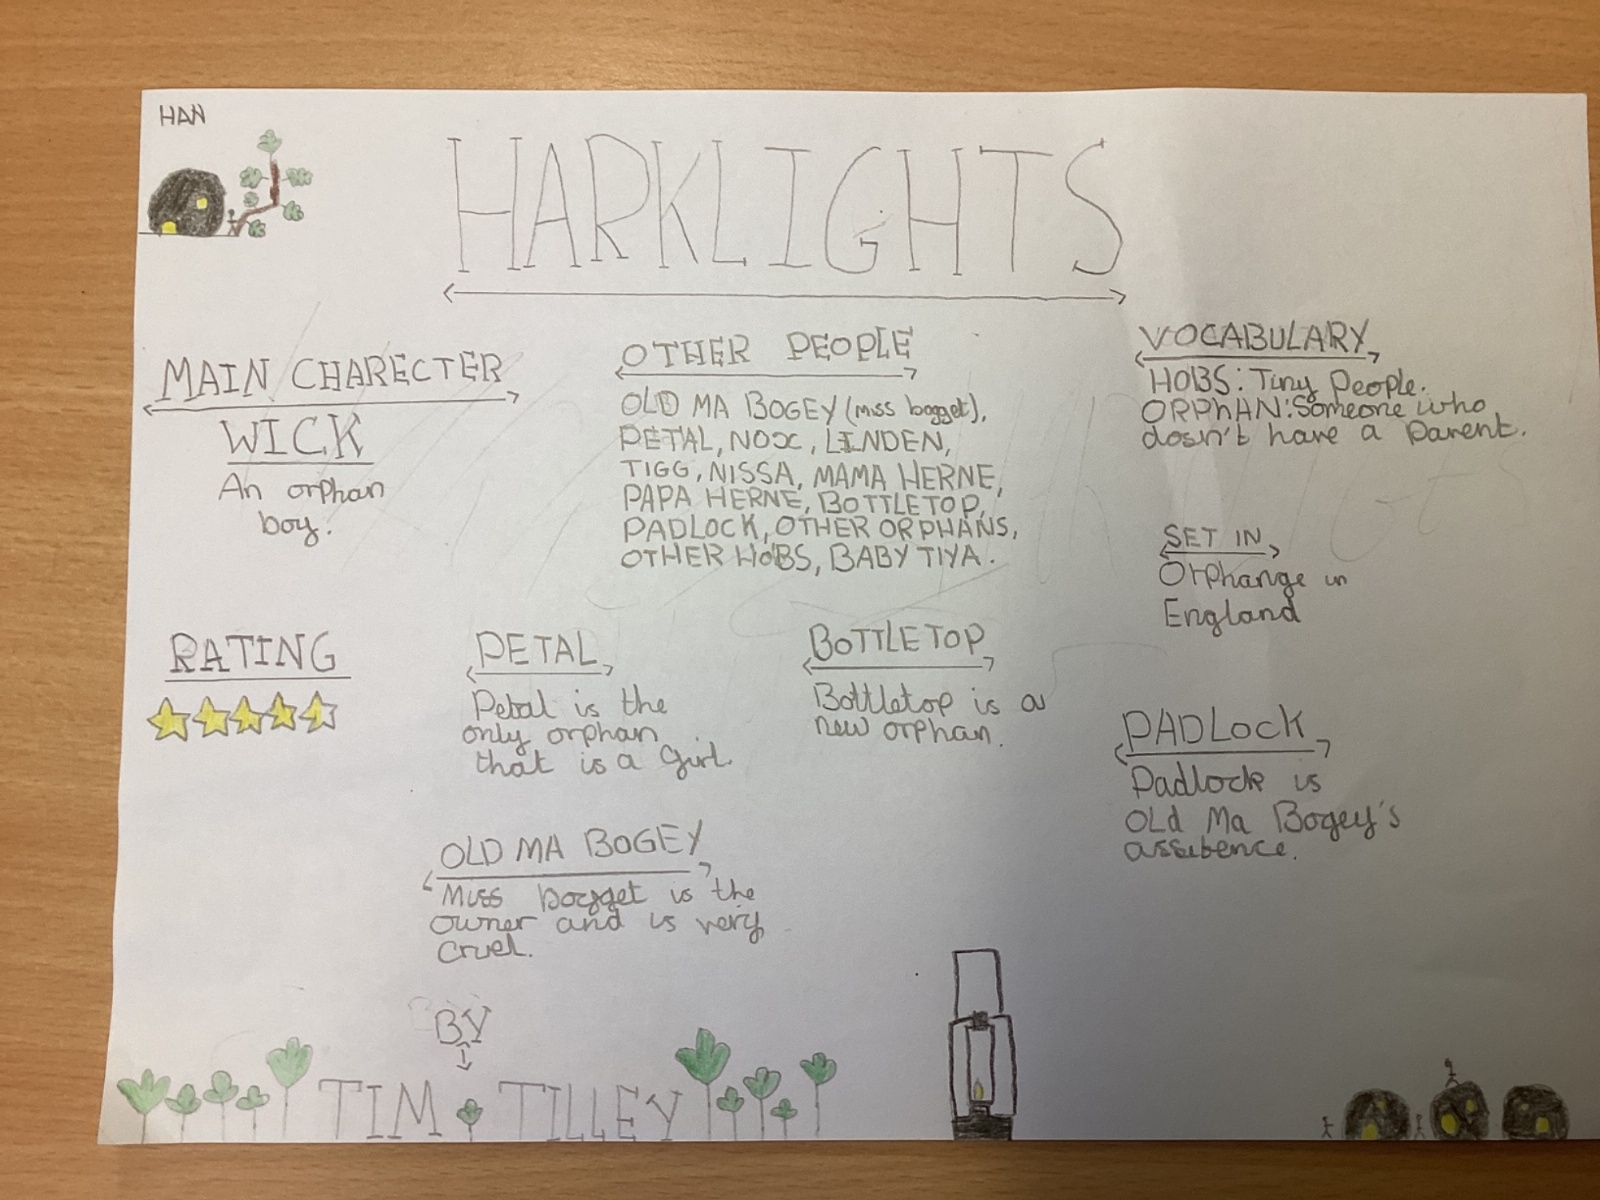 HAN
HARKLIGHTS
MAIN CHARECTER
WICK
An orphan
boy.
OTHER PEOPLE
OLD MA BOGEY (miss bogget),
PETAL, NOX, LINDEN,
TIGG, NISSA, MAMA HERNE,
PAPA HERNE, BOTTLETOP,
PADLOCK, OTHER ORPHANS,
OTHER HOBS, BABY TIYA.
VOCABULARY
HOBS: Tiny People.
ORPHAN: Someone who
dosn't have a parent.
SET IN
Orphange in
England
RATING
PETAL
Petal is the
only orphan
that is a girl.
BOTTLETOP
Bottletop is a
new orphan.
PADLOCK
Padlock is
Old Ma Bogey's
assitence.
OLD MA BOGEY
Miss Bogget is the
owner and is very
cruel.
BY
TIM TILLEY